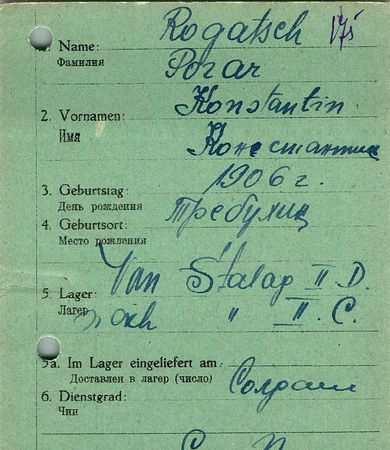 Rogatsch 175
1. Name:
Фамилия Рогач
Konstantin
2. Vornamen:
Имя Константин
1906 г.
3. Geburtstag:
День рождения Требухи
4. Geburtsort:
Место рождения
Van Stalag II D.
5. Lager:
Лагер nach " II C.
5a. Im Lager eingeliefert am:
Доставлен в лагер (число) Солдат
6. Dienstgrad:
Чин